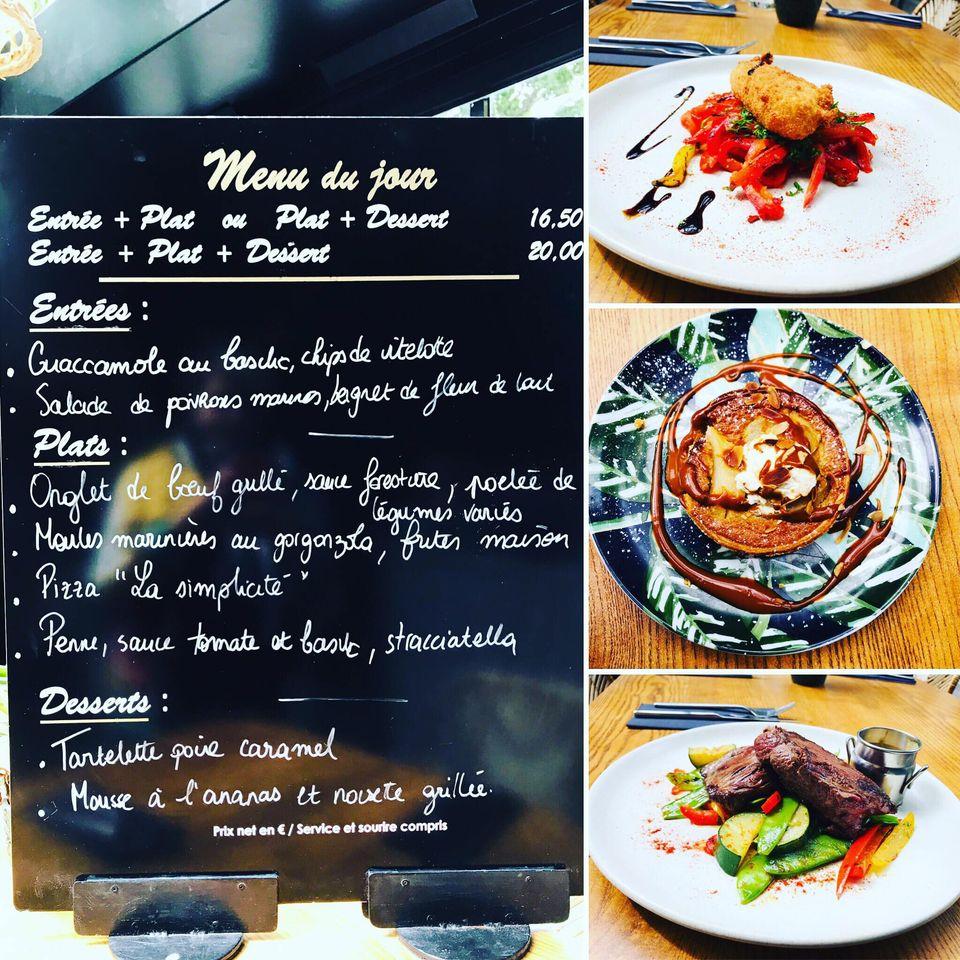 Menu du jour
Entrée + Plat ou Plat + Dessert 16,50
Entrée + Plat + Dessert 20,00
Entrées :
Guaccamole au basilic, chips de vitelotte
Salade de poivrons marinés, beignet de fleur de lait
Plats :
Onglet de bœuf grillé, sauce forestière, poelée de
légumes variés
Moules marinières au gorgonzola, frites maison
Pizza "La simplicité"
Penne, sauce tomate et basilic, stracciatella
Desserts :
Tartelette poire caramel
Mousse à l'ananas et noisette grillée.
Prix net en € / Service et sourire compris